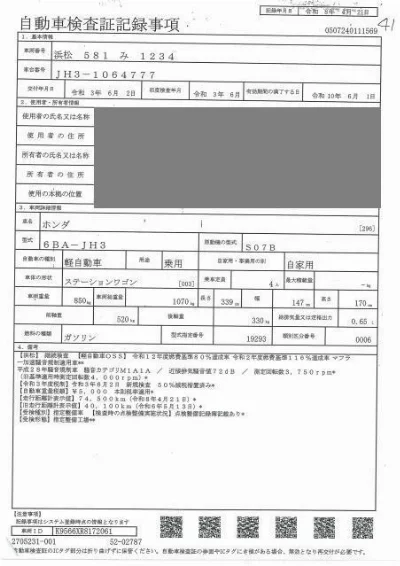 自動車検査証記録事項
記録年月日 令和 8年 4月21日
41
0507240111569
1．基本情報
車両番号 浜松 581 み 1234
車台番号 JH3-1064777
交付年月日 令和 3年 6月 2日 初度検査年月 令和 3年 6月 有効期間の満了する日 令和 10年 6月 1日
2．使用者・所有者情報
使用者の氏名又は名称
使用者の住所
所有者の氏名又は名称
所有者の住所
使用の本拠の位置
3．車両詳細情報
車名 ホンダ [296]
型式 6BA-JH3 原動機の型式 S07B
自動車の種別 軽自動車 用途 乗用 自家用・事業用の別 自家用
車体の形状 ステーションワゴン [003] 乗車定員 4人 最大積載量 －kg
車両重量 850kg 車両総重量 1070kg 長さ 339cm 幅 147cm 高さ 170cm
前軸重 520kg 後軸重 330kg 総排気量又は定格出力 0.65 L
燃料の種類 ガソリン 型式指定番号 19293 類別区分番号 0006
4．備考
[浜松] 継続検査 [軽自動車OSS] 令和12年度燃費基準80%達成車 令和2年度燃費基準116%達成車 マフラ
ー加速騒音規制適用車**
平成28年騒音規制車 騒音カテゴリM1A1A ／ 近接排気騒音値72dB ／ 測定回転数3,750rpm**
[令和3年度税制] 令和3年6月2日 新規検査 50%減税措置済み*
[自動車重量税額] ¥5,000 本則税率適用*
[走行距離計表示値] 74,500km (令和8年4月21日)*
[旧走行距離計表示値] 40,100km (令和6年5月13日)*
[受検種別] 指定整備車 [検査時の点検整備実施状況] 点検整備記録簿記載あり*
[受検形態] 指定整備工場*
[注意事項]
記録事項はシステム登録時点の情報となります
車両ID E9566XR8172061
2705231-001 52-02787
自動車検査証のICタグ部分は折り曲げずに保管ください。自動車検査証の券面やICタグに毀損がある場合、原則となり再交付が必要です。